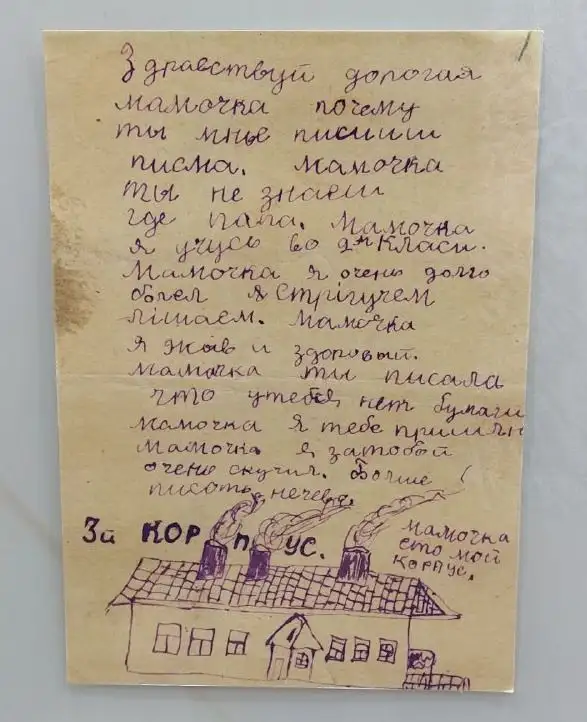 Здравствуй дорогая
мамочка почему
ты мнье писиш
писма. мамочка
ты не знаеш
где папа. Мамочка
я учусь во 2м Класи.
Мамочка я очень долго
болел я Стрігучем
лішаем. мамочка
я жыв и здоровый.
мамочка ты писала
что утебя нет бумаги
мамочка я тебе пришлю
мамочка я затобой
очень скучил. Болше
писать нечево.
3й КОРПУС.
мамочка
ето мой
корпус.